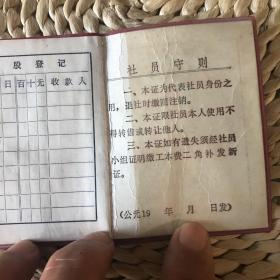 股登记
日百十元收款人
社员守则
一、本证为代表社员身份之
用，退社时缴回注销。
二、本证限社员本人使用不
得转借或转让他人。
三、本证如有遗失须经社员
小组证明缴工本费二角补发新
证。
(公元19 年 月 日发)